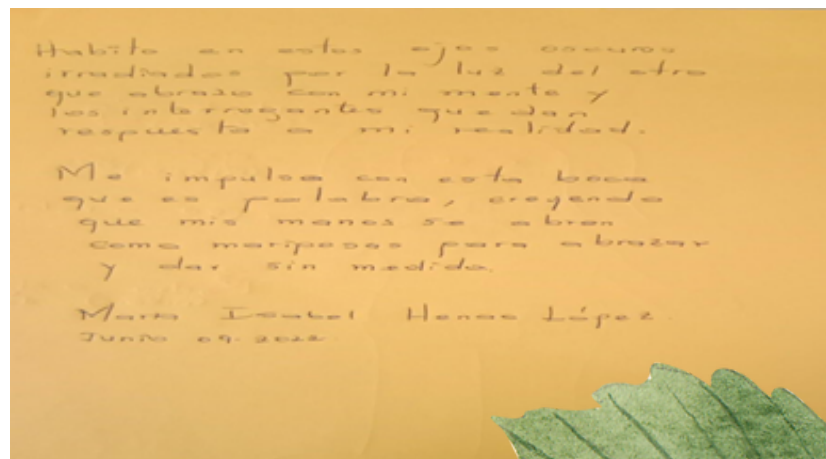 Habito en estos ojos oscuros
irradiados por la luz del otro
que abrazo con mi mente y
los interrogantes que dan
respuesta a mi realidad.
Me impulso con esta boca
que es palabra, creyendo
que mis manos se abren
como mariposas para abrazar
y dar sin medida.
María Isabel Henao López.
Junio 09. 2022.